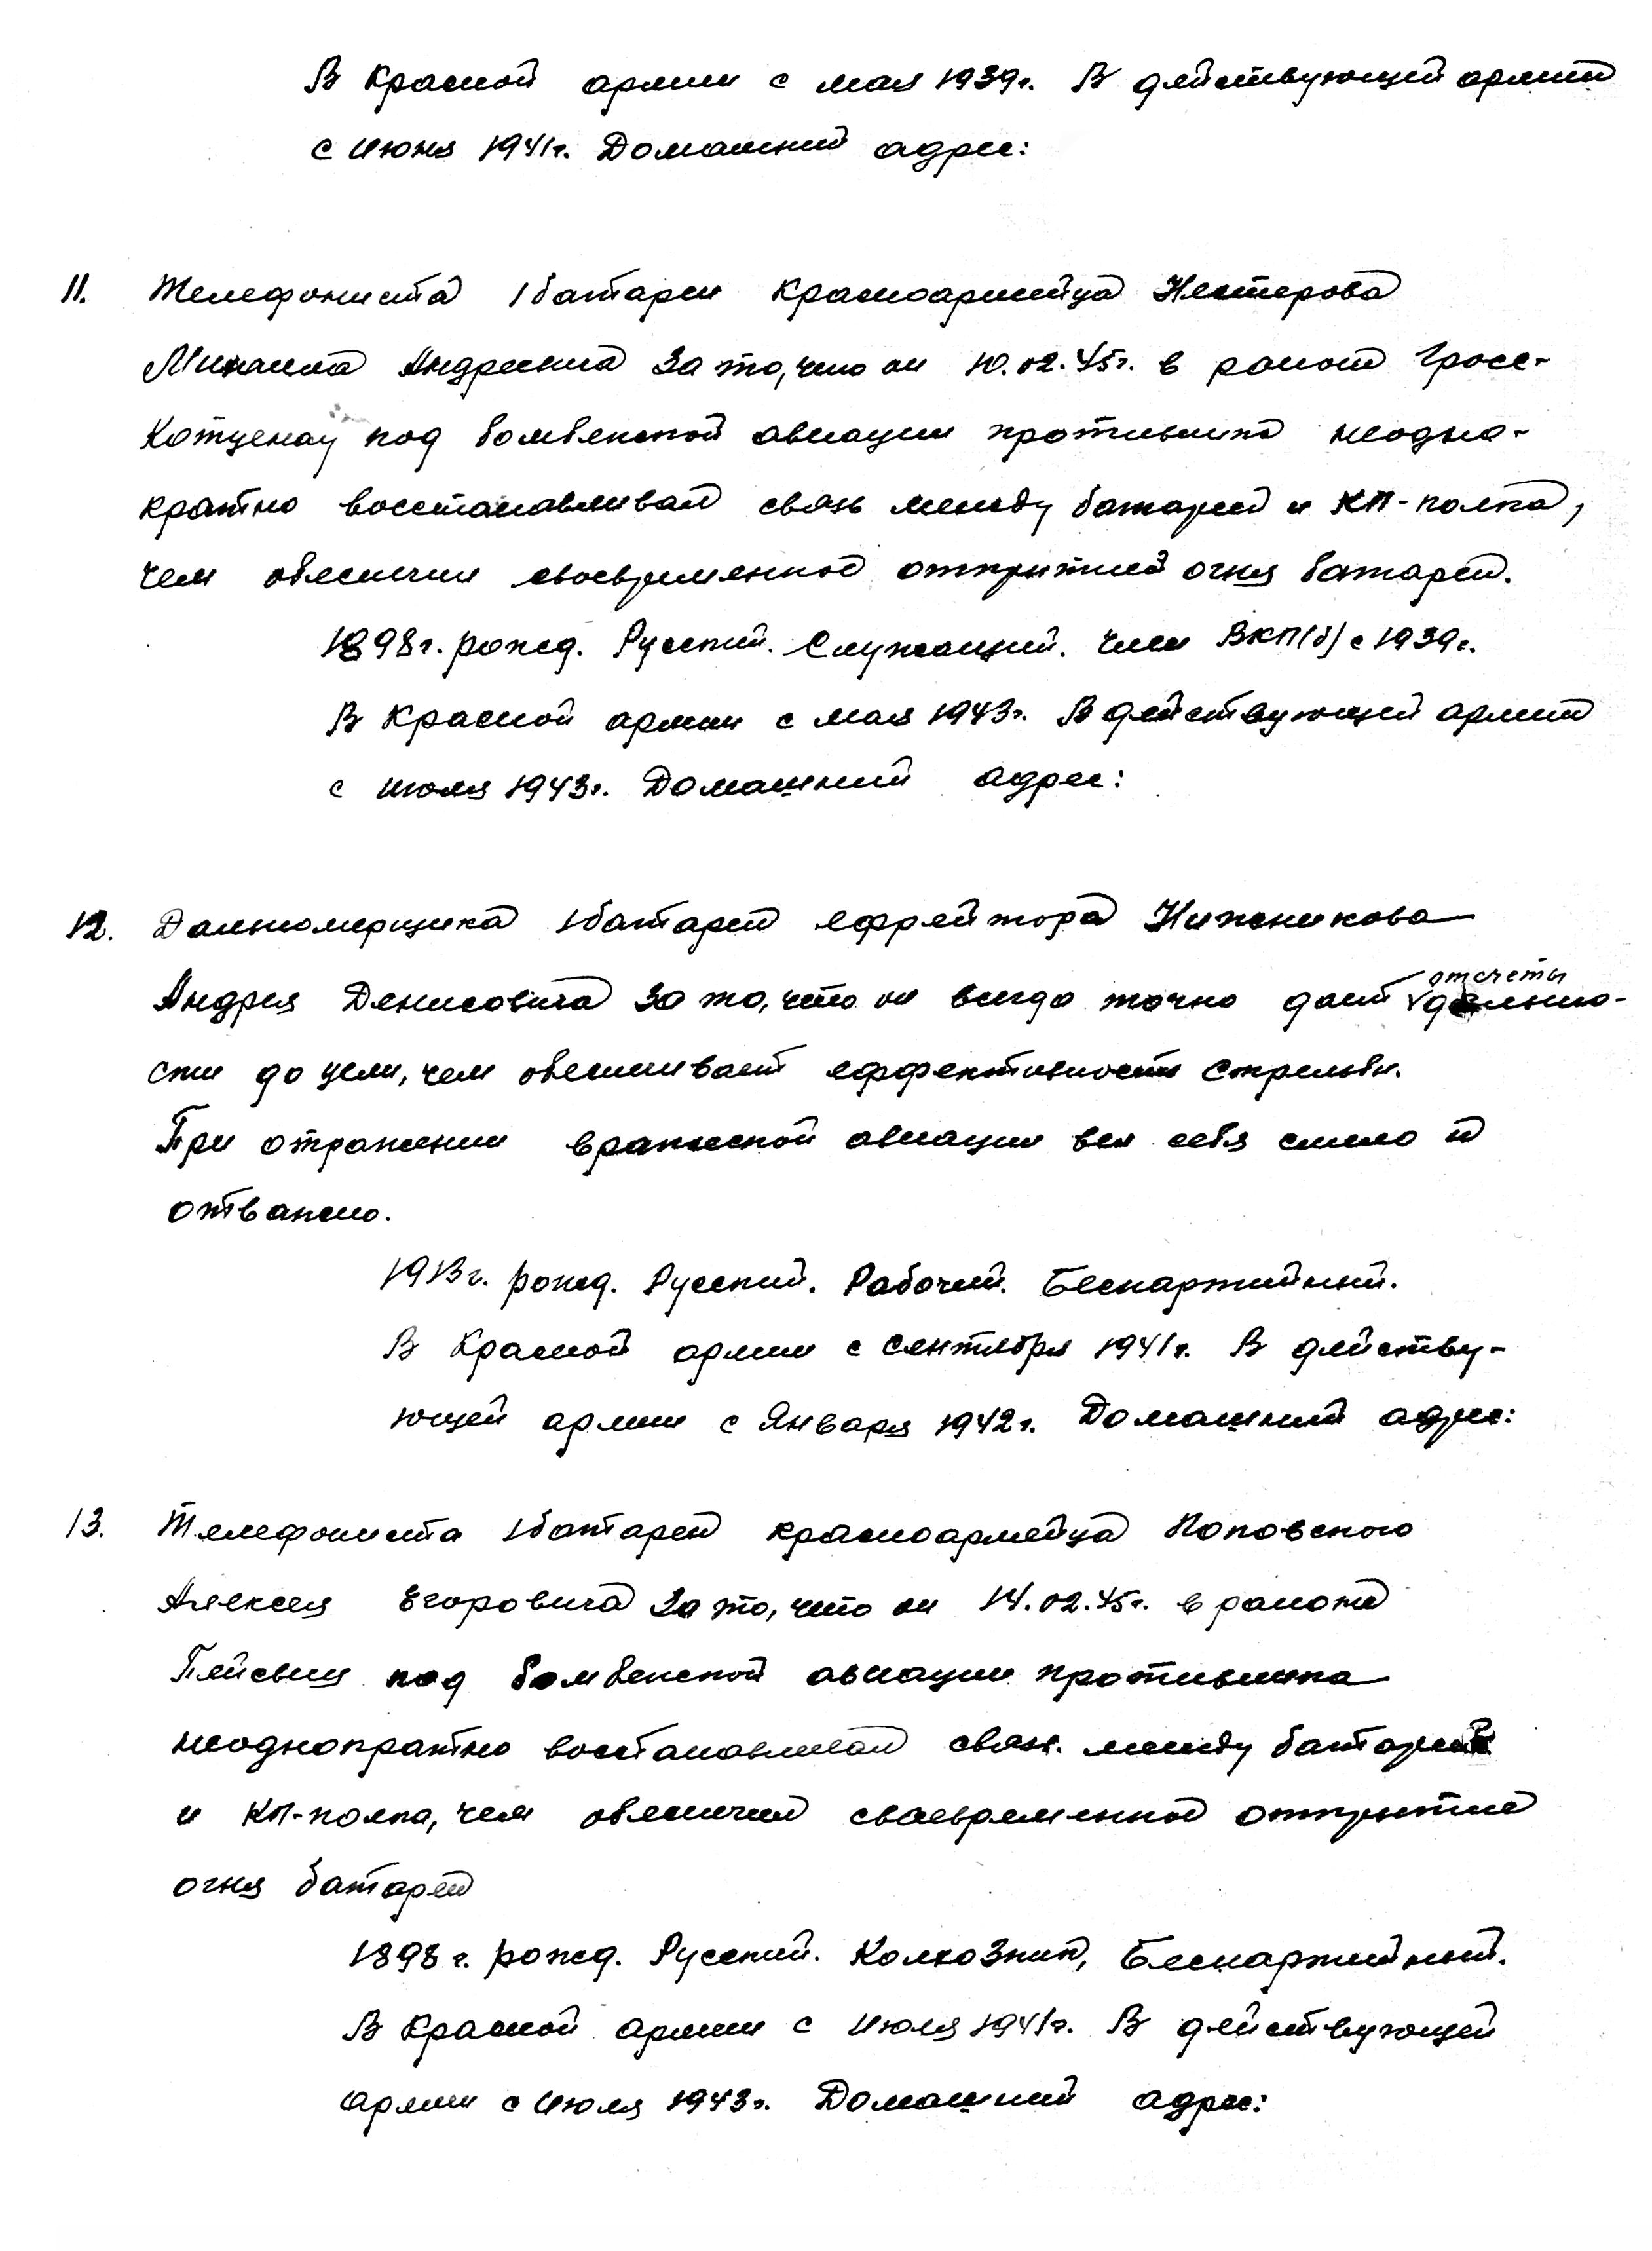 В Красной армии с мая 1939г. В действующей армии
с июня 1941г. Домашний адрес:
11. Телефониста 1 батареи красноармейца Нестерова
Михаила Андреевича за то, что он 10.02.45г. в районе Гросс-
Котценау под бомбежкой авиации противника неодно-
кратно восстанавливал связь между батареей и КП-полка,
чем обеспечил своевременное открытие огня батареи.
1898г. рожд. Русский. Служащий. Член ВКП(б) с 1939г.
В Красной армии с мая 1943г. В действующей армии
с июля 1943г. Домашний адрес:
12. Дальномерщика 1 батареи ефрейтора Нижникова
Андрея Денисовича за то, что он всегда точно дает отсчеты дально-
сти до цели, чем обеспечивает еффективность стрельбы.
При отражении вражеской авиации вел себя смело и
отважно.
1913г. рожд. Русский. Рабочий. Беспартийный.
В Красной армии с сентября 1941г. В действу-
ющей армии с Января 1942г. Домашний адрес:
13. Телефониста 1 батареи красноармейца Поповского
Алексея Егоровича за то, что он 14.02.45г. в районе
под бомбежкой авиации противника
неоднократно восстанавливал связь между батареей
и КП-полка, чем обеспечил своевременное открытие
огня батареи
1898г. рожд. Русский. Колхозник, Беспартийный.
В Красной армии с июля 1941г. В действующей
армии с июля 1943г. Домашний адрес: